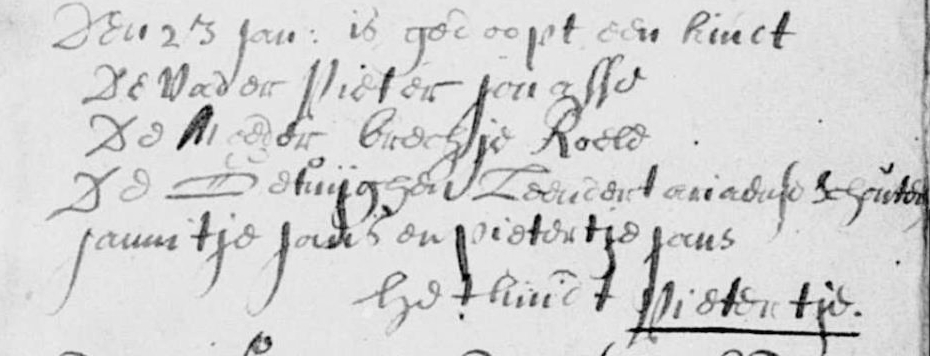 Den 23 Jan: is gedoopt een kinct
De Vader Pieter Jonasse
De Moeder brechje Roele
De Getuijghen Leendert ariaense Schouten
Jannitje Jans en pietertje Jans
He t kinct Pietertje.